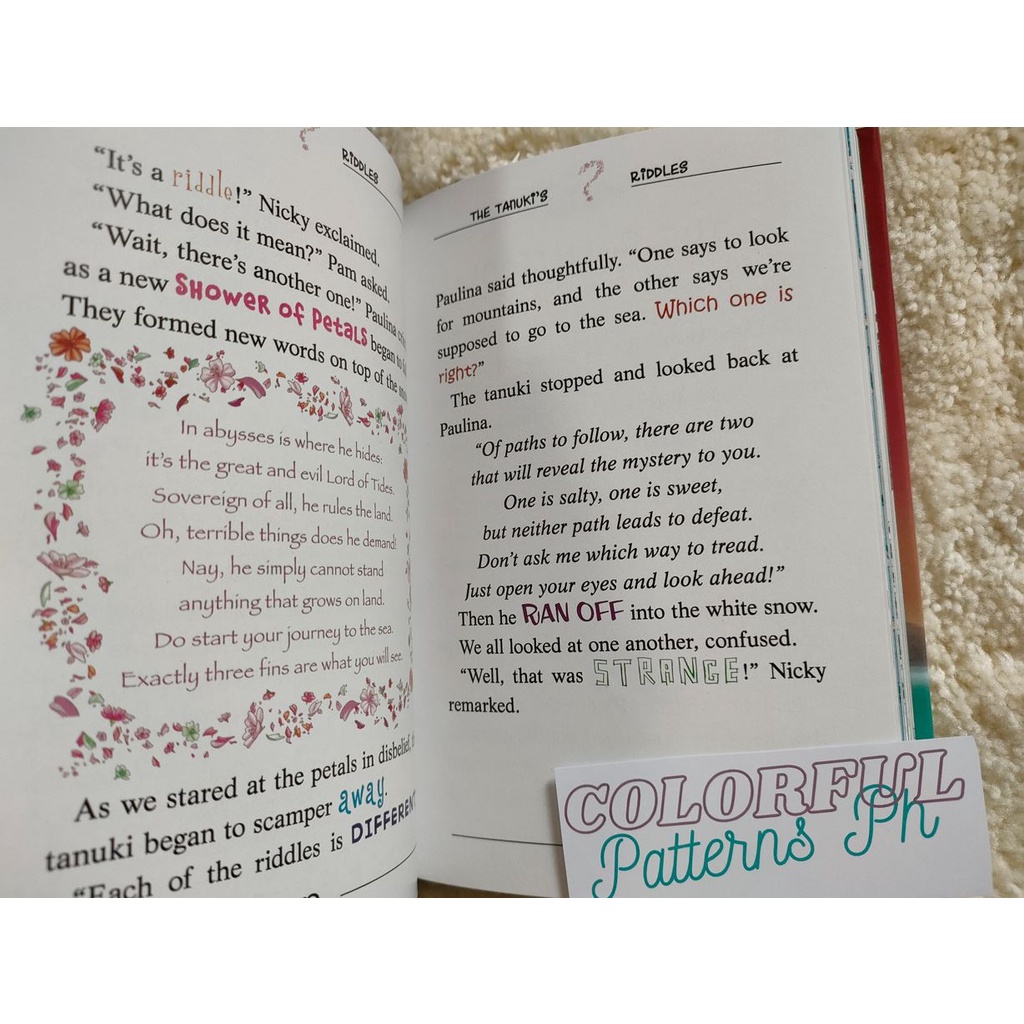 RIDDLES
“It’s a riddle!” Nicky exclaimed.
“What does it mean?” Pam asked.
“Wait, there’s another one!” Paulina
as a new SHOWER OF PETALS began to
They formed new words on top of the
In abysses is where he hides:
it’s the great and evil Lord of Tides.
Sovereign of all, he rules the land.
Oh, terrible things does he demand!
Nay, he simply cannot stand
anything that grows on land.
Do start your journey to the sea.
Exactly three fins are what you will see.
As we stared at the petals in disbelief,
tanuki began to scamper away.
“Each of the riddles is DIFFERENT
THE TANUKI’S ? RIDDLES
Paulina said thoughtfully. “One says to look
for mountains, and the other says we’re
supposed to go to the sea. Which one is
right?”
The tanuki stopped and looked back at
Paulina.
“Of paths to follow, there are two
that will reveal the mystery to you.
One is salty, one is sweet,
but neither path leads to defeat.
Don’t ask me which way to tread.
Just open your eyes and look ahead!”
Then he RAN OFF into the white snow.
We all looked at one another, confused.
“Well, that was STRANGE!” Nicky
remarked.
COLORFUL
Patterns Ph